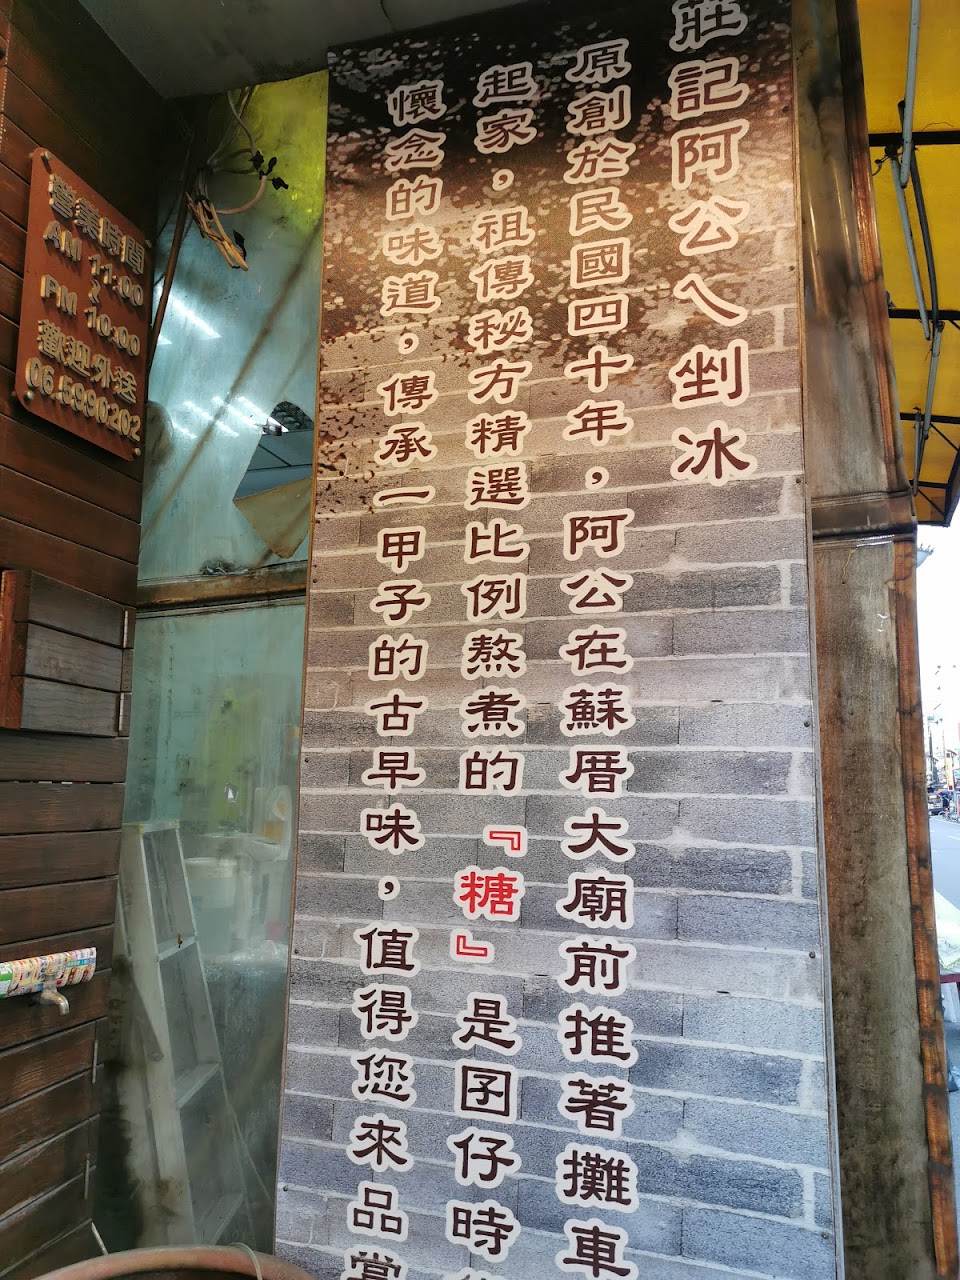 莊記阿公ㄟ剉冰
原創於民國四十年，阿公在蘇厝大廟前推著攤車
起家，祖傳秘方精選比例熬煮的『糖』是囝仔時
懷念的味道，傳承一甲子的古早味，值得您來品
營業時間
AM 11:00
~
PM 10:00
歡迎外送
06.5990202